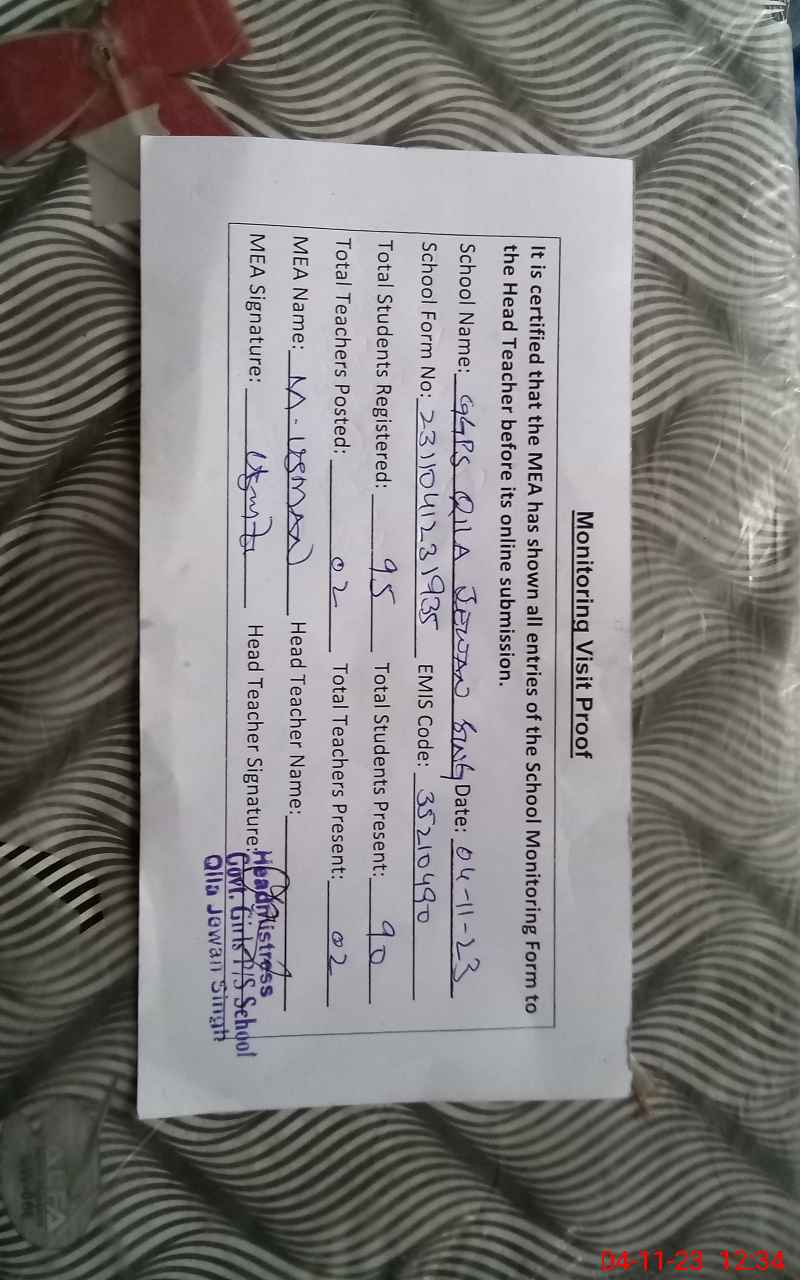 Monitoring Visit Proof
It is certified that the MEA has shown all entries of the School Monitoring Form to
the Head Teacher before its online submission.
School Name: GGPS QILA JEWAN SING Date: 04-11-23
School Form No: 2311041231935 EMIS Code: 35210490
Total Students Registered: 95 Total Students Present: 90
Total Teachers Posted: 02 Total Teachers Present: 02
MEA Name: M-USMAN Head Teacher Name:
MEA Signature: Head Teacher Signature:
Headmistress
Govt. Girls P/S School
Qila Jewan Singh
04-11-23 12:34